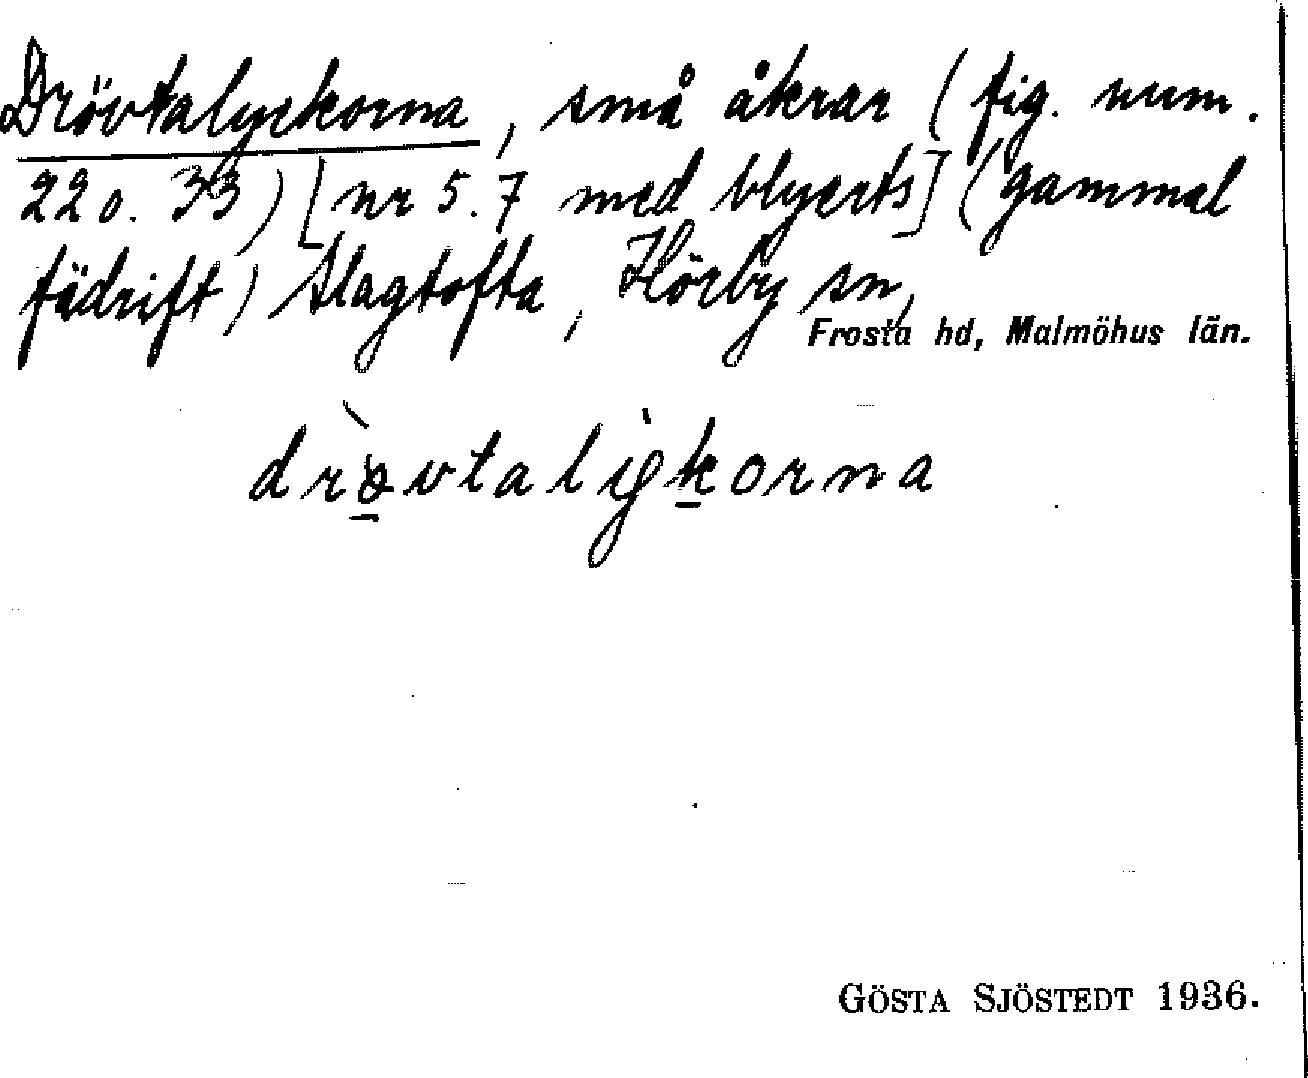 Drövtalyckorna, små åkrar (fig. num.
22 o. 33) [nr 5. 7 med blyerts] (gammal
fädrift) Slagtofta, Hörby sn,
Frosta hd, Malmöhus län.
drø̀vtalỳkorna
GÖSTA SJÖSTEDT 1936.